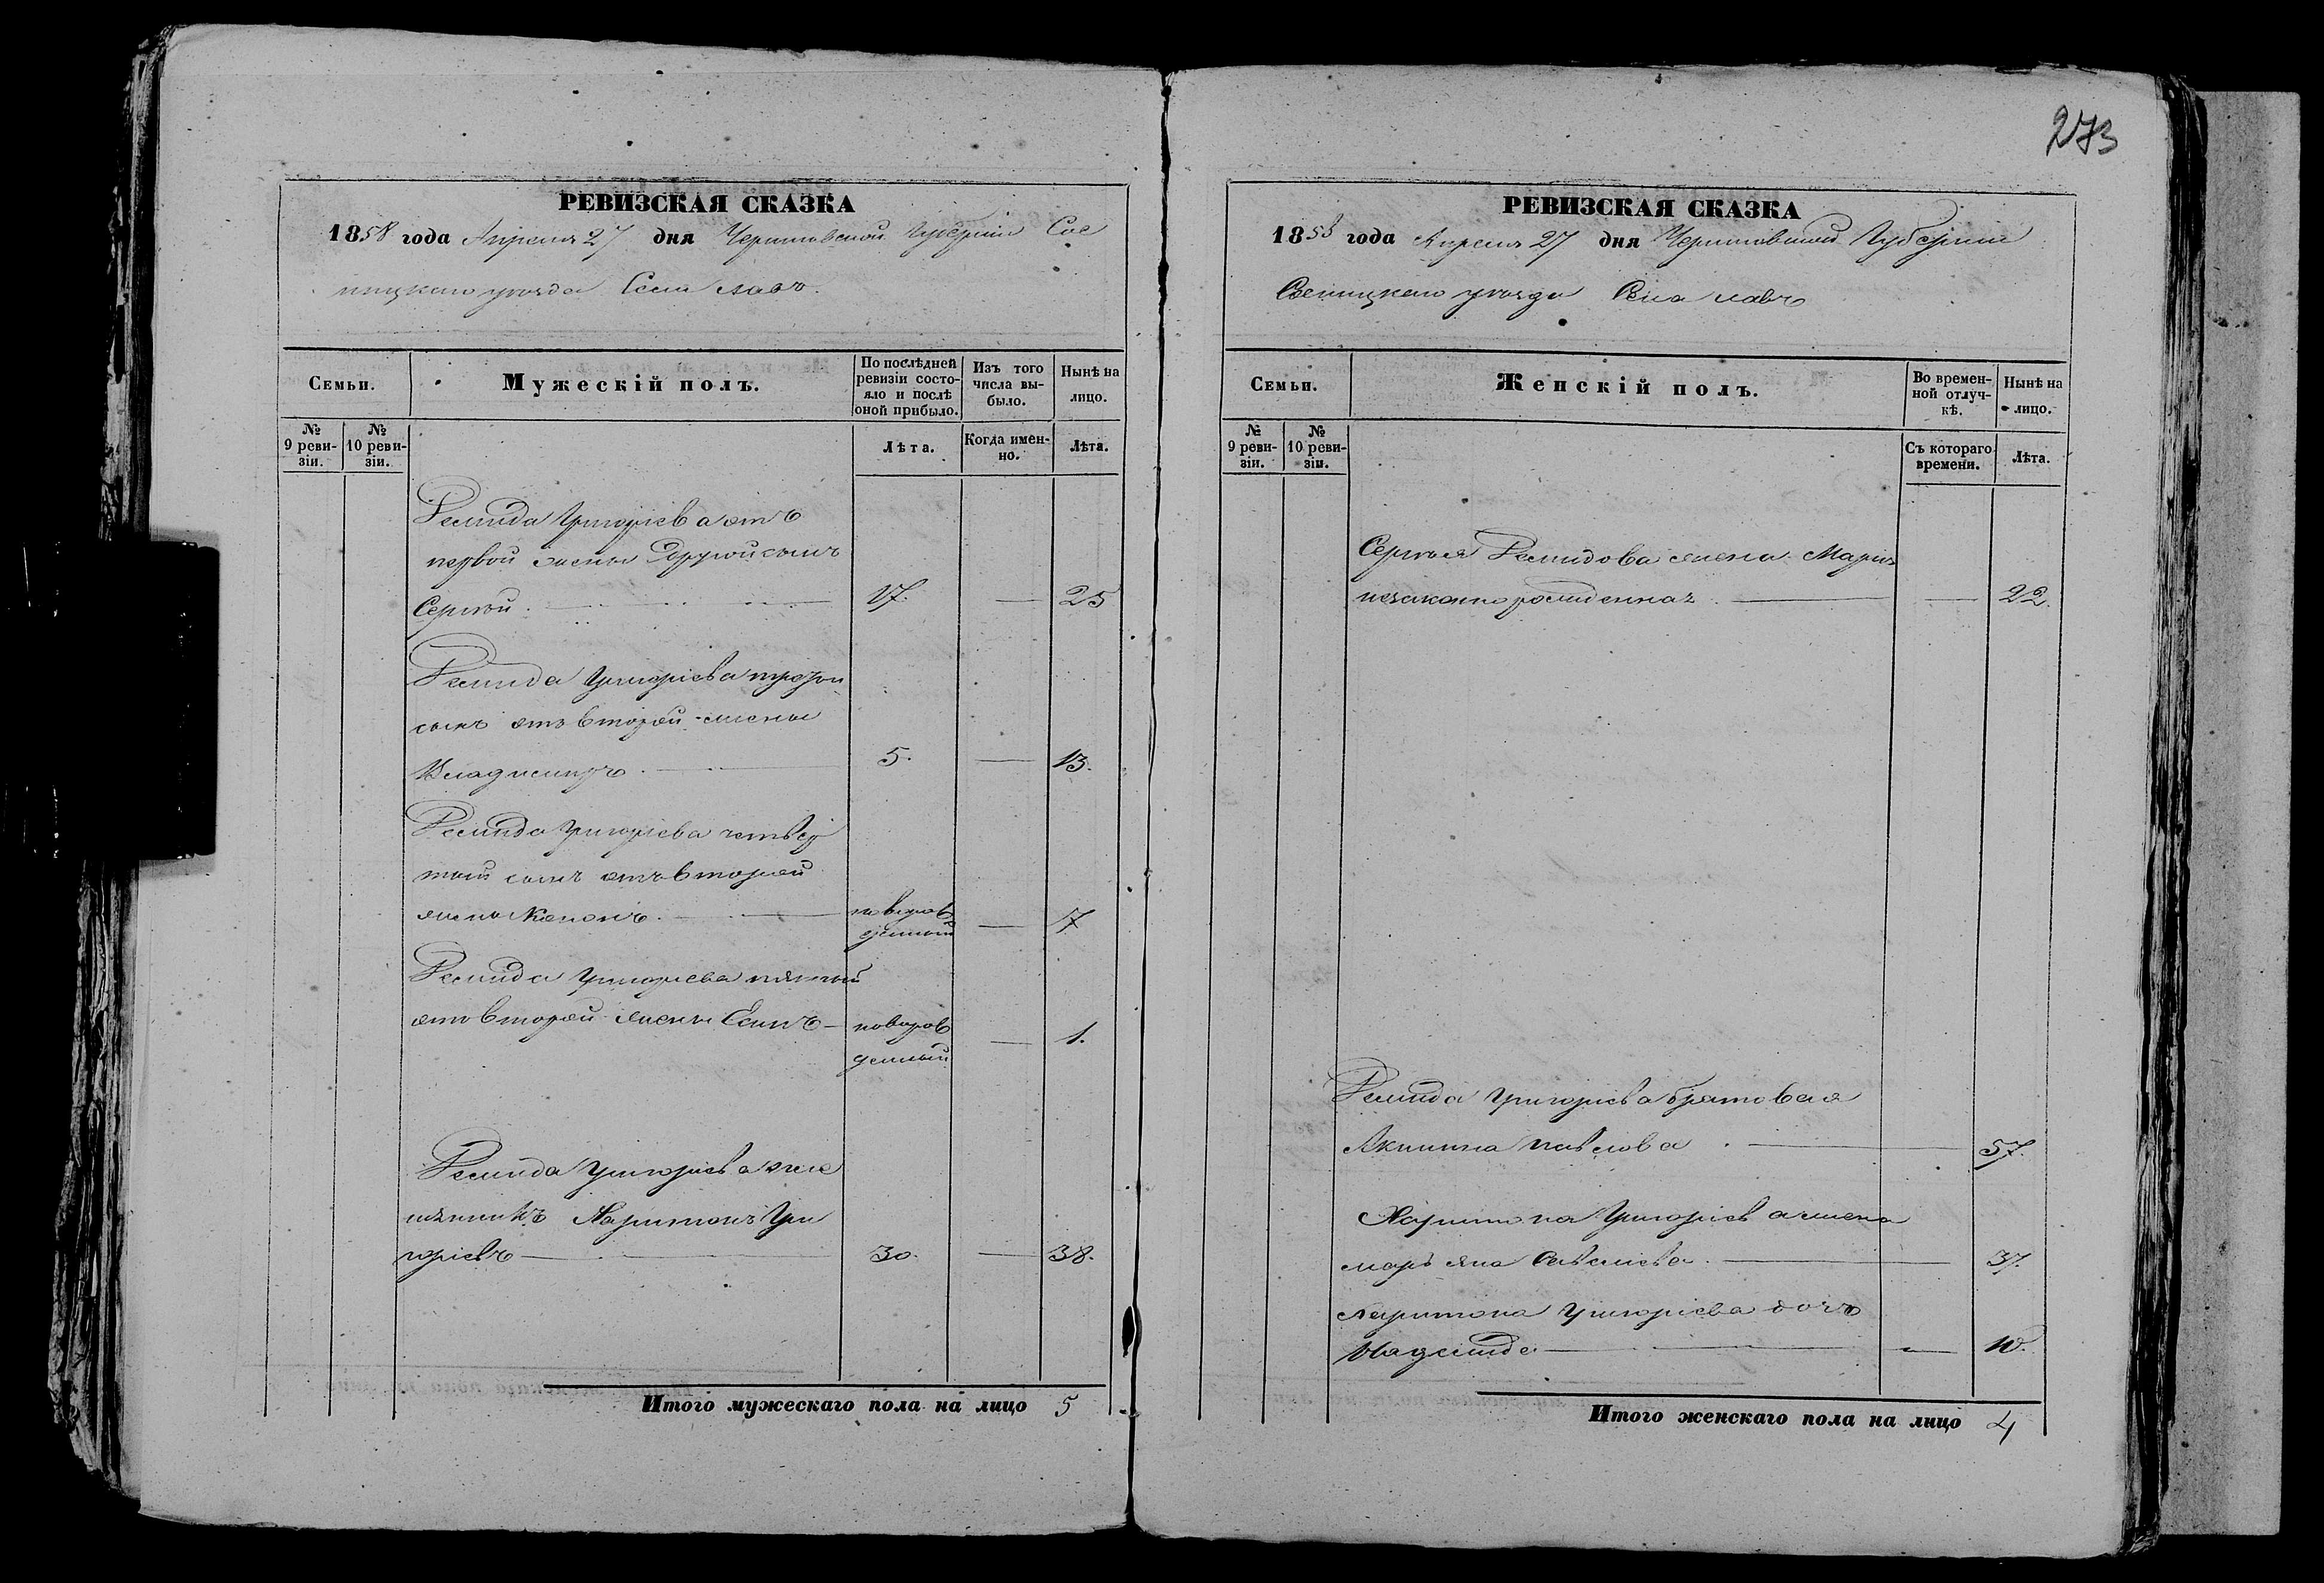 273
РЕВИЗСКАЯ СКАЗКА
1858 года Апреля 27 дня Черниговской Губерніи Сос
ницкаго уезда Села
Семьи.
Мужескій полъ.
По послѣдней ревизіи состо-
яло и послѣ оной прибыло.
Изъ того числа вы-
было.
Нынѣ на лицо.
№ 9 реви-
зіи.
№ 10 реви-
зіи.
Лѣта.
Когда имен-
но.
Лѣта.
Демида Григоріева отъ
первой жены другой сынъ
Сергѣй 17. 25
Демида Григоріева третій
сынъ отъ второй жены
Владимиръ 5. 13.
Демида Григоріева четвер
тый сынъ отъ второй
жены Кононъ новорож
денный 7
Демида Григориева пятый
отъ второй жены новорож
денный 1.
Демида Григоріева пле
мянникъ Харитонъ Гри
горіевъ 30. 38.
Итого мужескаго пола на лицо 5
РЕВИЗСКАЯ СКАЗКА
1858 года Апреля 27 дня Черниговской Губерніи
Сосницкаго уезда Села
Семьи.
Женскій полъ.
Во времен-
ной отлуч-
кѣ.
Нынѣ на лицо.
№ 9 реви-
зіи.
№ 10 реви-
зіи.
Съ котораго времени.
Лѣта.
Сергѣя Демидова жена Марія
незаконнорожденная 22.
Демида Григоріева братовая
Акилина Павлова 57.
Харитона Григоріева жена
Марьяна Савелиева 37.
Харитона Григоріева дочь
10.
Итого женскаго пола на лицо 4